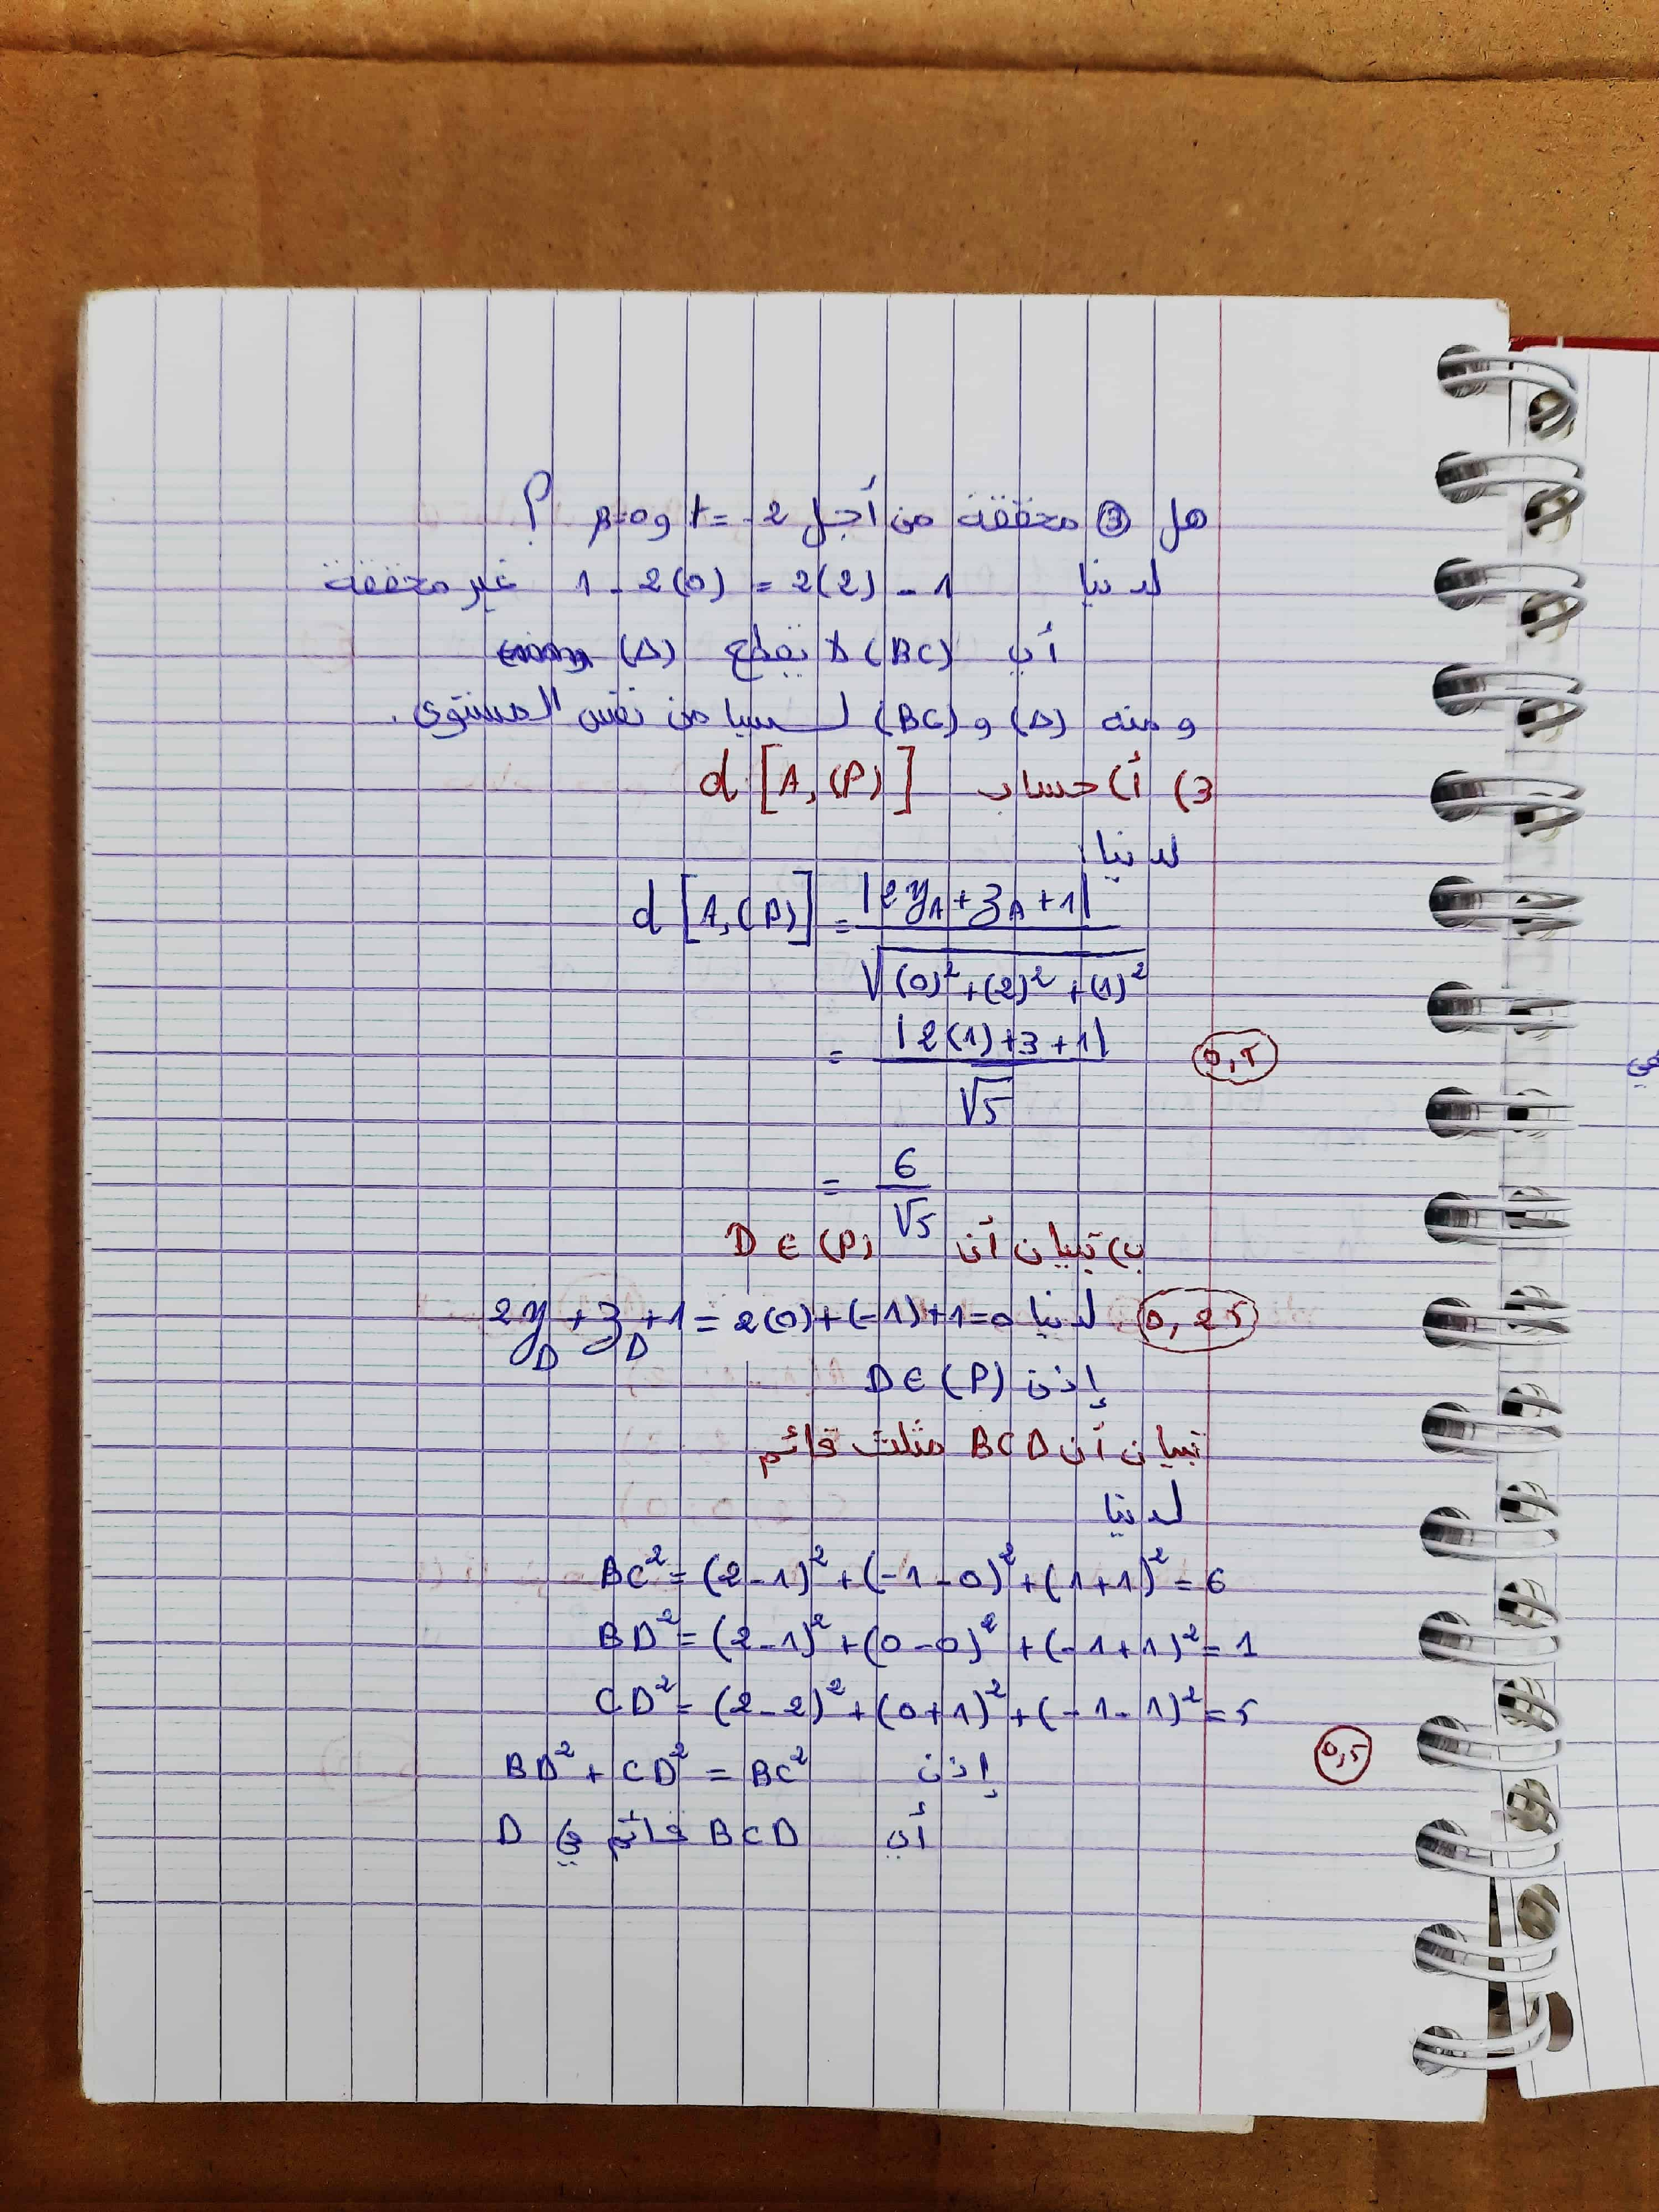 هل ③ محققة من أجل t = -2 و β=0 ؟
لدينا 1 - 2(0) = 2(2) - 1 غير محققة
أي (BC) لا يقطع (Δ)
و منه (Δ) و (BC) ليسا من نفس المستوى.
3) أ) حساب d[A,(P)]
لدينا
d[A,(P)] = |2y_A + z_A + 1| / √((0)² + (2)² + (1)²)
= |2(1)+3+1| / √5
0,5
= 6 / √5
ب) تبيان أن D ∈ (P)
0,25 لدينا 2y_D + z_D + 1 = 2(0)+(-1)+1=0
إذن D ∈ (P)
تبيان أن BCD مثلث قائم
لدينا
BC² = (2-1)² + (-1-0)² + (1+1)² = 6
BD² = (2-1)² + (0-0)² + (-1+1)² = 1
CD² = (2-2)² + (0+1)² + (-1-1)² = 5
0,5
إذن BD² + CD² = BC²
أي BCD قائم في D